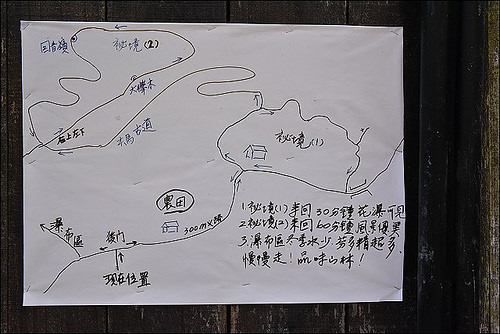 回音嶺
秘境(2)
大樟木
右上左下
木馬古道
秘境(1)
農田
300m×陡
瀑布區
後門
現在位置
1.秘境(1)來回30分鐘花瀑可見
2.秘境(2)來回60分鐘風景優美
3.瀑布區冬季水少,芬多精超多.
慢慢走!品味山林!